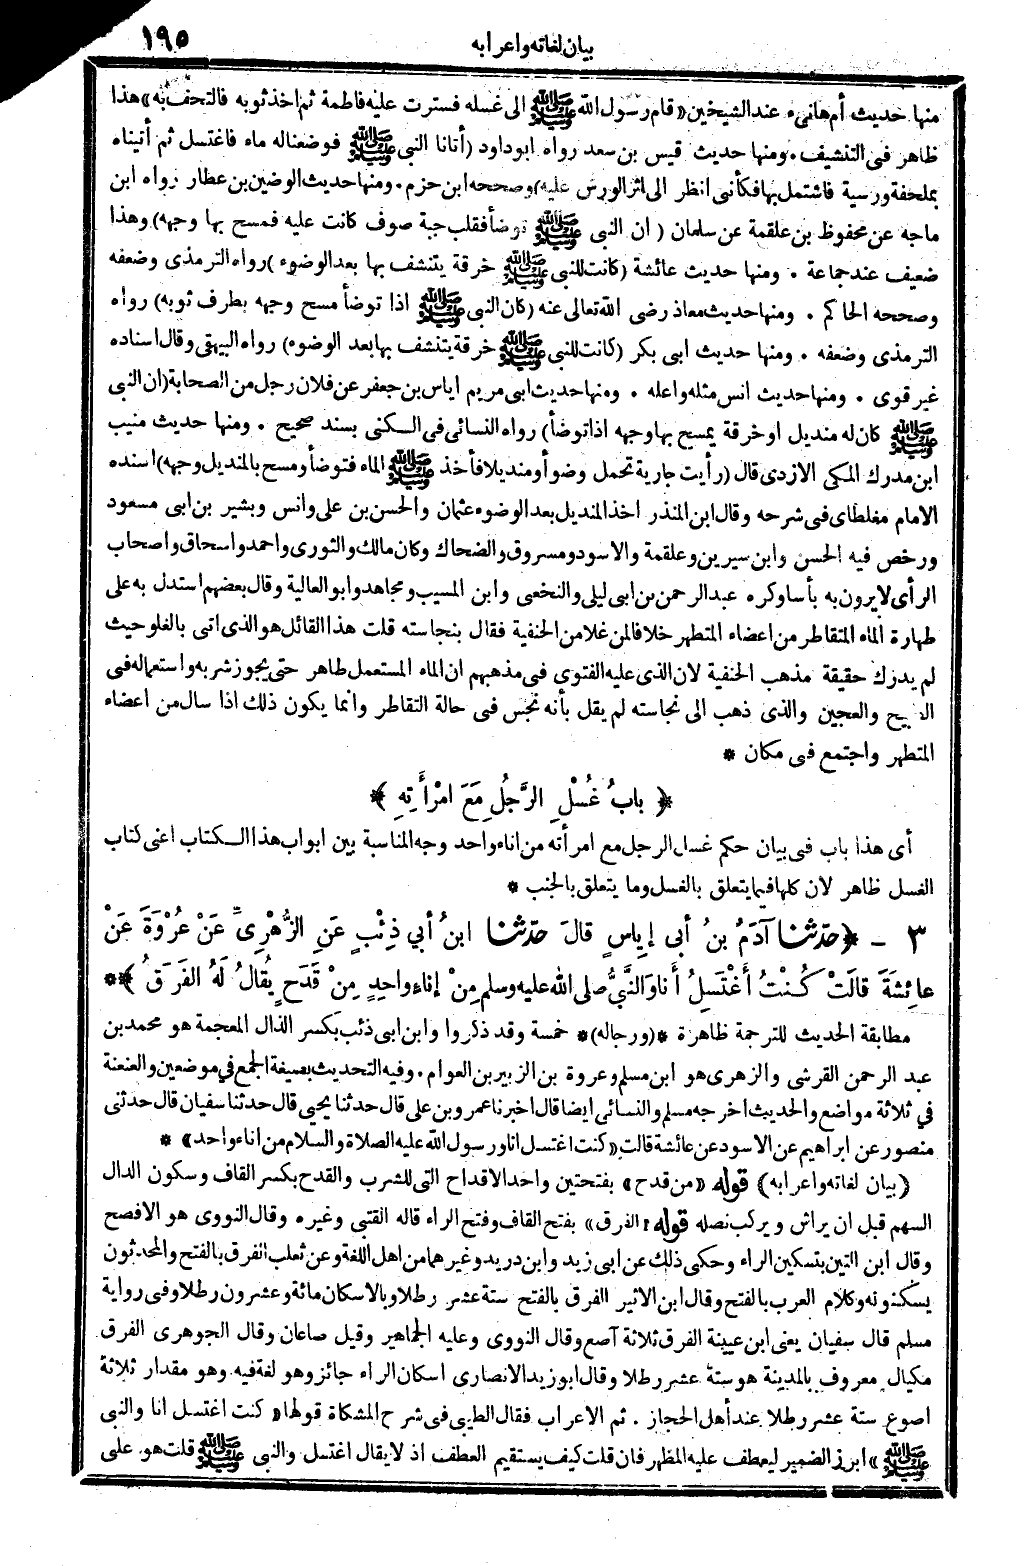 بيان لغاته واعرابه
١٩٥
منها حديث أم هانىء عند الشيخين «قام رسول الله ﷺ الى غسله فسترت عليه فاطمة ثم اخذ ثوبه فالتحف به» هذا
ظاهر فى التنشيف . ومنها حديث قيس بن سعد رواه ابوداود (أتانا النبى ﷺ فوضعناله ماء فاغتسل ثم أتيناه
بملحفة ورسية فاشتمل بها فكأنى انظر الى اثر الورس عليه) وصححه ابن حزم . ومنها حديث الوضين بن عطار رواه ابن
ماجه عن محفوظ بن علقمة عن سلمان ( ان النبى ﷺ توضأ فقلب جبة صوف كانت عليه فمسح بها وجهه) وهذا
ضعيف عند جماعة . ومنها حديث عائشة (كانت للنبى ﷺ خرقة يتنشف بها بعد الوضوء )رواه الترمذى وضعفه
وصححه الحاكم . ومنها حديث معاذ رضى الله تعالى عنه (كان النبى ﷺ اذا توضأ مسح وجهه بطرف ثوبه) رواه
الترمذى وضعفه . ومنها حديث ابى بكر (كانت للنبى ﷺ خرقة يتنشف بها بعد الوضوء) رواه البيهقى وقال اسناده
غير قوى . ومنها حديث انس مثله واعله . ومنها حديث ابى مريم اياس بن جعفر عن فلان رجل من الصحابة (ان النبى
ﷺ كان له منديل او خرقة يمسح بها وجهه اذا توضأ) رواه النسائى فى الكنى بسند صحيح . ومنها حديث منيب
ابن مدرك المكى الازدى قال (رأيت جارية تحمل وضوأ ومنديلا فأخذ ﷺ الماء فتوضأ ومسح بالمنديل وجهه) اسنده
الامام مغلطاى فى شرحه وقال ابن المنذر اخذ المنديل بعد الوضوء عثمان والحسن بن على وانس وبشير بن ابى مسعود
ورخص فيه الحسن وابن سيرين وعلقمة والاسود ومسروق والضحاك وكان مالك والثورى واحمد واسحاق واصحاب
الرأى لايرون به بأسا وكره عبد الرحمن بن ابى ليلى والنخعى وابن المسيب ومجاهد وابو العالية وقال بعضهم استدل به على
طهارة الماء المتقاطر من اعضاء المتطهر خلافا لمن غلا من الحنفية فقال بنجاسته قلت هذا القائل هو الذى اتى بالغلو حيث
لم يدرك حقيقة مذهب الحنفية لان الذى عليه الفتوى فى مذهبهم ان الماء المستعمل طاهر حتى يجوز شربه واستعماله فى
والعجين والذى ذهب الى نجاسته لم يقل بأنه نجس فى حالة التقاطر وانما يكون ذلك اذا سال من اعضاء
المتطهر واجتمع فى مكان *
﴿ بابُ غُسْلِ الرَّجُلِ مَعَ امْرَأَتِهِ ﴾
أى هذا باب فى بيان حكم غسل الرجل مع امرأته من اناء واحد وجه المناسبة بين ابواب هذا الكتاب اعنى كتاب
الغسل ظاهر لان كلها فيما يتعلق بالغسل وما يتعلق بالجنب *
٣ ـ ﴿حدّثنا آدَمُ بنُ أبى إياسٍ قالَ حدّثنا ابنُ أبي ذِئْبٍ عَنِ الزُّهْرِىِّ عَنْ عُرْوَةَ عَنْ
عائِشَةَ قالَتْ كُنْتُ أَغْتَسِلُ أَنا وَالنَّبىُّ صلى الله عليه وسلم مِنْ إِناءٍ واحِدٍ مِنْ قَدَحٍ يُقالُ لَهُ الفَرَقُ ﴾*
مطابقة الحديث للترجمة ظاهرة *(ورجاله)* خمسة وقد ذكروا وابن ابى ذئب بكسر الذال المعجمة هو محمد بن
عبد الرحمن القرشى والزهرى هو ابن مسلم وعروة بن الزبير بن العوام . وفيه التحديث بصيغة الجمع في موضعين والعنعنة
في ثلاثة مواضع والحديث اخرجه مسلم والنسائى ايضا قال اخبرنا عمرو بن على قال حدثنا يحيى قال حدثنا سفيان قال حدثنى
منصور عن ابراهيم عن الاسود عن عائشة قالت «كنت اغتسل انا ورسول الله عليه الصلاة والسلام من اناء واحد» *
(بيان لغاته واعرابه) قوله «من قدح» بفتحتين واحد الاقداح التى للشرب والقدح بكسر القاف وسكون الدال
السهم قبل ان يراش ويركب نصله قوله «الفرق» بفتح القاف وفتح الراء قاله القتبى وغيره وقال النووى هو الافصح
وقال ابن التين بتسكين الراء وحكى ذلك عن ابى زيد وابن دريد وغيرهما من اهل اللغة وعن ثعلب الفرق بالفتح والمحدثون
يسكنونه وكلام العرب بالفتح وقال ابن الاثير الفرق بالفتح ستة عشر رطلا وبالاسكان مائة وعشرون رطلا وفى رواية
مسلم قال سفيان يعنى ابن عيينة الفرق ثلاثة آصع وقال النووى وعليه الجماهير وقيل صاعان وقال الجوهرى الفرق
مكيال معروف بالمدينة هو ستة عشر رطلا وقال ابوزيد الانصارى اسكان الراء جائز وهو لغة فيه وهو مقدار ثلاثة
اصوع ستة عشر رطلا عند أهل الحجاز . ثم الاعراب فقال الطيبى فى شرح المشكاة قولها« كنت اغتسل انا والنبى
ﷺ» ابرز الضمير ليعطف عليه المظهر فان قلت كيف يستقيم العطف اذ لا يقال اغتسل والنبى ﷺ قلت هو على